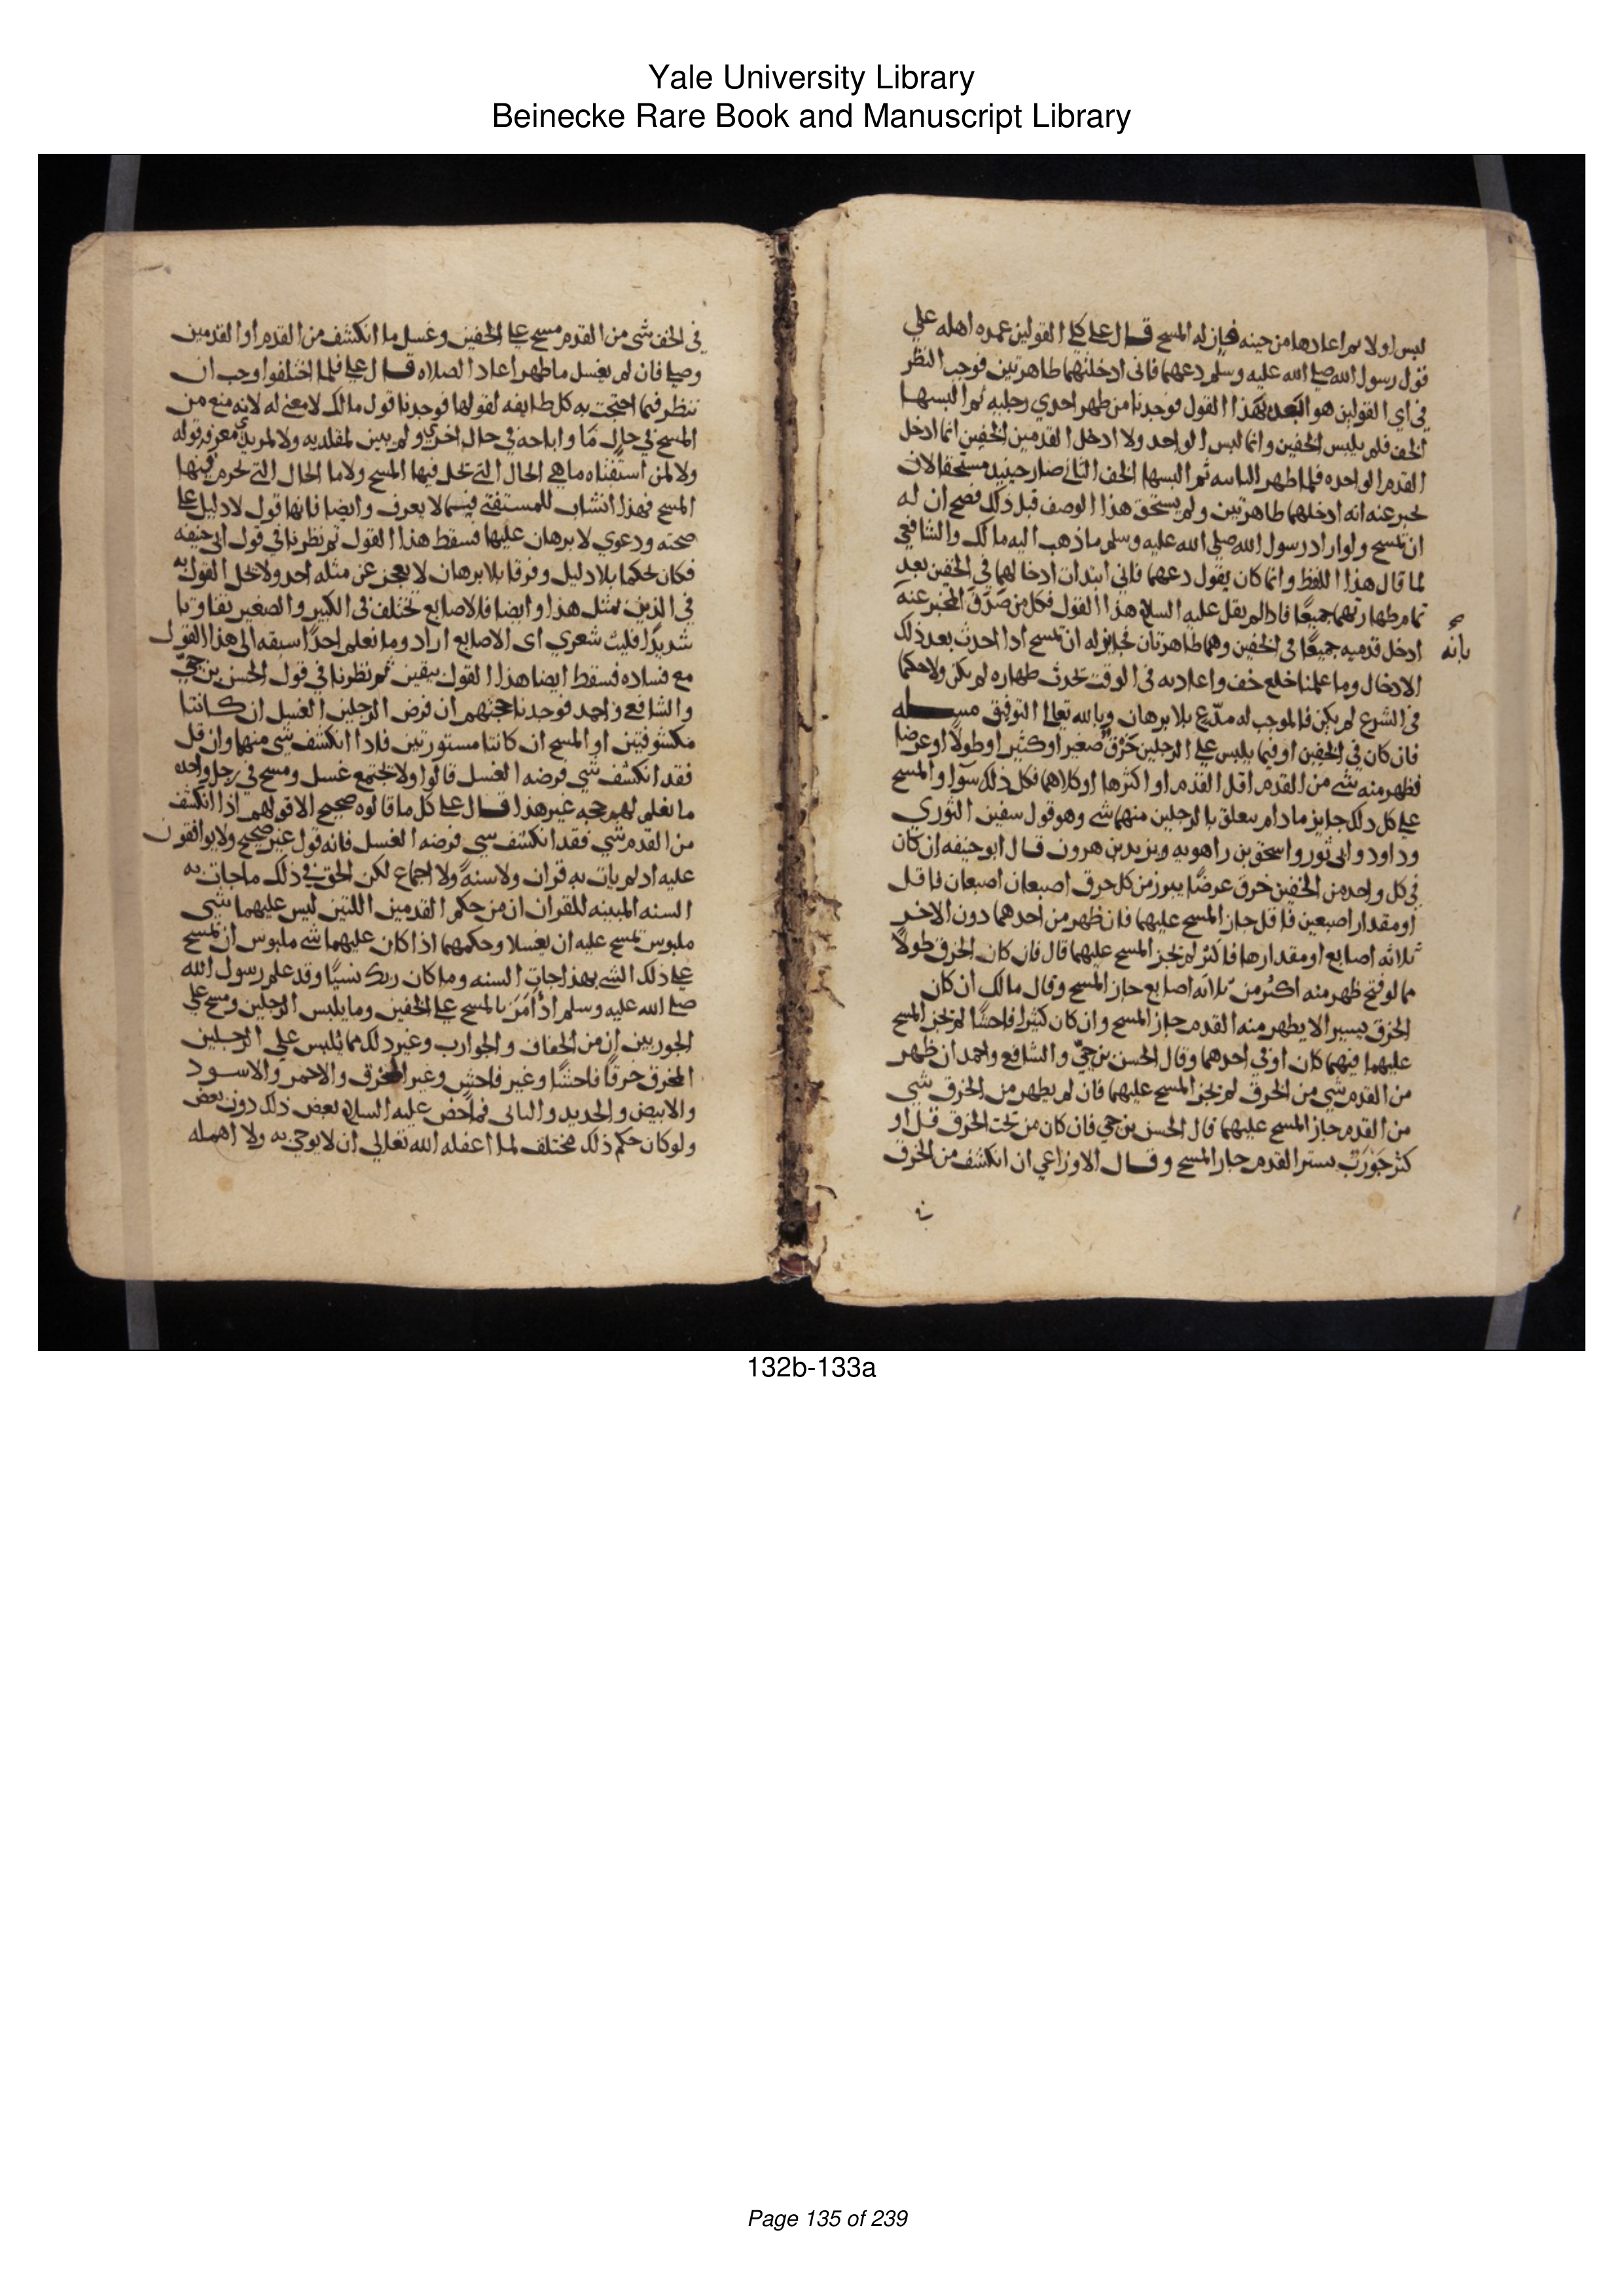 Yale University Library
Beinecke Rare Book and Manuscript Library
لبس اولا ثم اعادها من حينه فان له المسح قال علي كلي القولين عمده اهله علي
قول رسول الله صلي الله عليه وسلم دعهما فاني ادخلتهما طاهرتين فوجب النظر
في اي القولين هو اسعد بهذا القول فوجدنا من طهر احدي رجليه ثم البسها
الخف فلم يلبس الخفين وانما لبس الواحد ولا ادخل القدمين الخفين انما ادخل
القدم الواحده فلما طهر الثانيه ثم البسها الخف الثاني صار حينيذ مستحقا لان
يخبر عنه انه ادخلهما طاهرتين ولم يستحق هذا الوصف قبل ذلك فصح ان له
ان يمسح ولو اراد رسول الله صلي الله عليه وسلم ما ذهب اليه مالك والشافعي
لما قال هذا اللفظ وانما كان يقول دعهما فاني ابتدات ادخالهما في الخفين بعد
تمام طهارتهما جميعا فاذا لم يقل عليه السلام هذا القول فكل من صدق المخبر عنه
بانه
ادخل قدميه جميعا في الخفين وهما طاهرتان فجايز له ان يمسح اذا احدث بعد ذلك
الادخال وما علمنا خلع خف واعادته في الوقت يحدث طهاره لم تكن ولا حكما
في الشرع لم يكن فالموجب له مدع بلا برهان وبالله تعالي التوفيق مســـله
فان كان في الخفين او فيما يلبس علي الرجلين خرق صغير او كثير او طولا او عرضا
فظهر منه شي من القدم اقل القدم او اكثرها او كلاهما فكل ذلك سوا والمسح
علي كل ذلك جايز ما دام يتعلق بالرجلين منهما شي وهو قول سفين الثوري
وداود وابي ثور واسحق بن راهويه ويزيد بن هرون قال ابو حنيفه ان كان
في كل واحد من الخفين خرق عرضا يبرز من كل خرق اصبعان اصبعان فاقل
او مقدار اصبعين فاقل جاز المسح عليهما فان ظهر من احدهما دون الاخر
ثلاثه اصابع او مقدارها فاكثر لم يجز المسح عليهما قال فان كان الخرق طولا
مما لو فتح ظهر منه اكثر من ثلاثه اصابع جاز المسح وقال مالك ان كان
الخرق يسيرا لا يظهر منه القدم جاز المسح وان كان كثيرا فاحشا لم يجز المسح
عليهما فيهما كان او في احدهما وقال الحسن بن حي والشافعي واحمد ان ظهر
من القدم شي من الخرق لم يجز المسح عليهما فان لم يظهر من الخرق شي
من القدم جاز المسح عليهما قال الحسن بن حي فان كان من تحت الخرق قل او
كثر جورب يستر القدم جاز المسح وقال الاوزاعي ان انكشف من الخرق
في الخف شي من القدم مسح علي الخفين وغسل ما انكشف من القدم او القدمين
وصلي فان لم يغسل ما ظهر اعاد الصلاه قال علي فلما اختلفوا وجب ان
ننظر فيما احتجت به كل طايفه لقولها فوجدنا قول مالك لا معني له لانه منع من
المسح في حال ما واباحه في حال اخري ولم يبين لمقلديه ولا لمريدي معرفه قوله
ولا لمن استفتاه ما هي الحال التي تحل فيها المسح ولا ما الحال التي تحرم فيها
المسح فهذا انشاب للمستفتي فيما لا يعرف وايضا فانها قول لا دليل علي
صحته ودعوي لا برهان عليها فسقط هذا القول ثم نظرنا في قول ابي حنيفه
فكان تحكما بلا دليل وفرقا بلا برهان لا يعجز عن مثله احد ولا تحل القول به
في الدين بمثل هذا وايضا فالاصابع تختلف في الكبر والصغير تفاوتا
شديدا فليت شعري اي الاصابع اراد وما نعلم احدا سبقه الي هذا القول
مع فساده فسقط ايضا هذا القول بيقين ثم نظرنا في قول الحسن بن حي
والشافعي واحمد فوجدنا حجتهم ان فرض الرجلين الغسل ان كانتا
مكشوفتين او المسح ان كانتا مستورتين فاذا انكشف شي منهما وان قل
فقد انكشف شي فرضه الغسل قالوا ولا يجتمع غسل ومسح في رجل واحده
ما نعلم لهم حجه غير هذا قال علي كل ما قالوه صحيح الا قولهم اذا انكشف
من القدم شي فقد انكشف شي فرضه الغسل فانه قول غير صحيح ولا يوافقون
عليه اذ لم يات به قران ولا سنه ولا اجماع لكن الحق في ذلك ما جات به
السنه المبينه للقران ان من حكم القدمين اللتين ليس عليهما شي
ملبوس يمسح عليه ان يغسلا وحكمهما اذا كان عليهما شي ملبوس ان يمسح
علي ذلك الشي بهذا جات السنه وما كان ربك نسيا وقد علم رسول الله
صلي الله عليه وسلم اذ امر بالمسح علي الخفين وما يلبس الرجلين ومسح علي
الجوربين ان من الخفاف والجوارب وغير ذلك مما يلبس علي الرجلين
المخرق خرقا فاحشا وغير فاحش وغير المخرق والاحمر والاسود
والابيض والجديد والبالي فما خص عليه السلام بعض ذلك دون بعض
ولو كان حكم ذلك مختلف لما اغفله الله تعالي ان لا يوحي به ولا اهمله
132b-133a
Page 135 of 239